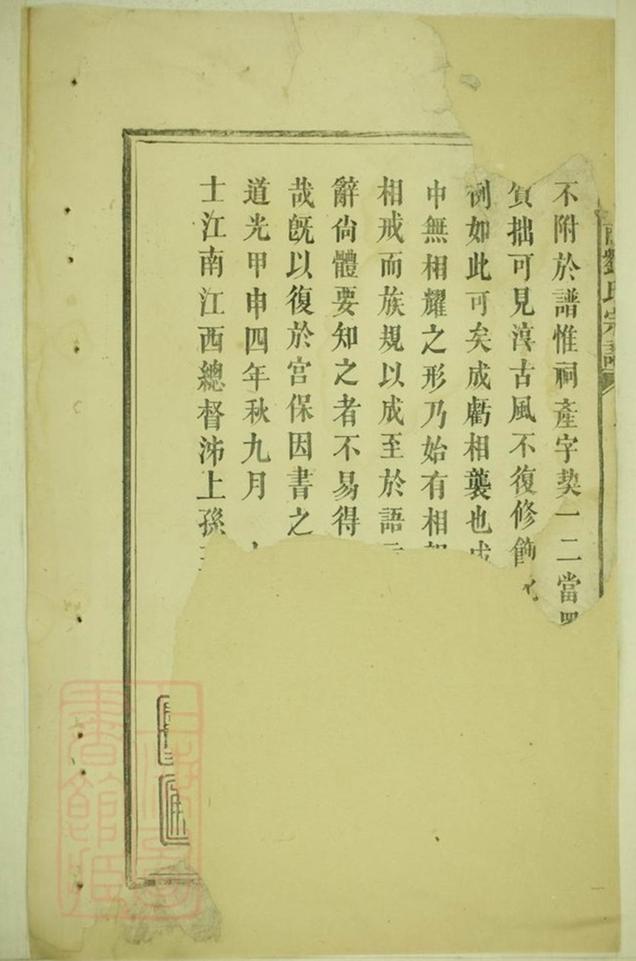 劉氏宗譜
不附於譜惟祠產字契一二當
質拙可見淳古風不復修飾
例如此可矣成虧相襲也
中無相耀之形乃始有相
相戒而族規以成至於語
辭尙體要知之者不易得
哉旣以復於宮保因書之
道光甲申四年秋九月
士江南江西總督沛上孫